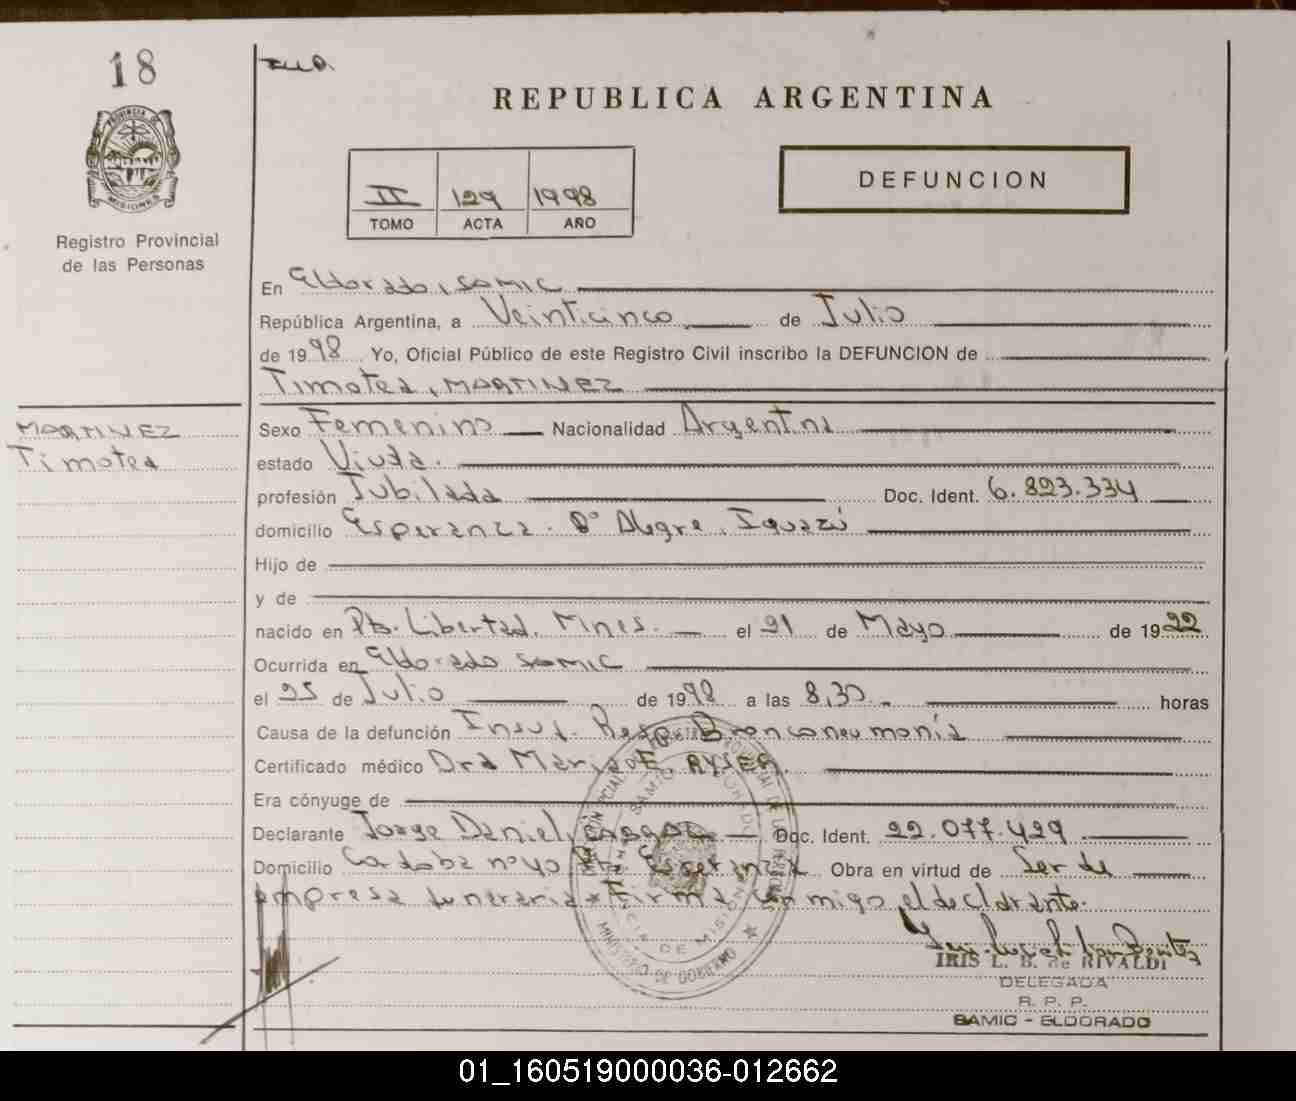 18
REPUBLICA ARGENTINA
PROVINCIA DE
MISIONES
Registro Provincial
de las Personas
II 129 1998
TOMO ACTA AÑO
DEFUNCION
En Eldorado, SAMIC
República Argentina, a Veinticinco de Julio
de 1998 Yo, Oficial Público de este Registro Civil inscribo la DEFUNCION de
Timotea, MARTINEZ
MARTINEZ
Timotea
Sexo Femenino Nacionalidad Argentina
estado Viuda.
profesión Jubilada Doc. Ident. 6.823.334
domicilio Esperanza. Bº Alegre. Iguazú
Hijo de
y de
nacido en Pto. Libertad. Mnes. el 21 de Mayo de 1922
Ocurrida en Eldorado SAMIC
el 25 de Julio de 1998 a las 8,30 horas
Causa de la defunción Insuf. Resp. Bronconeumonía
Certificado médico Dra Marisa E. RYSER.
Era cónyuge de
Declarante Jorge Daniel Doc. Ident. 22.077.429
Domicilio Cordoba nº 40 Pto. Esperanza Obra en virtud de Ser de
empresa funeraria * Firma conmigo el declarante.
IRIS L. B. de RIVALDI
DELEGADA
R. P. P.
SAMIC - ELDORADO
MINISTERIO DE GOBIERNO
01_160519000036-012662